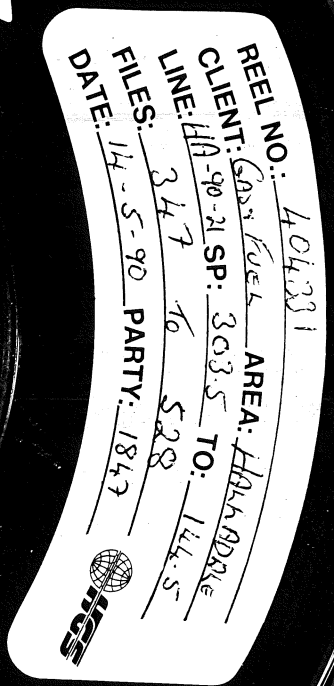 REEL NO.: 404331
CLIENT: GAS & FUEL AREA: HALLADALE
LINE: HA-90-21 SP: 303.5 TO: 144.5
FILES: 347 To 528
DATE: 14-5-90 PARTY: 1847
HGS